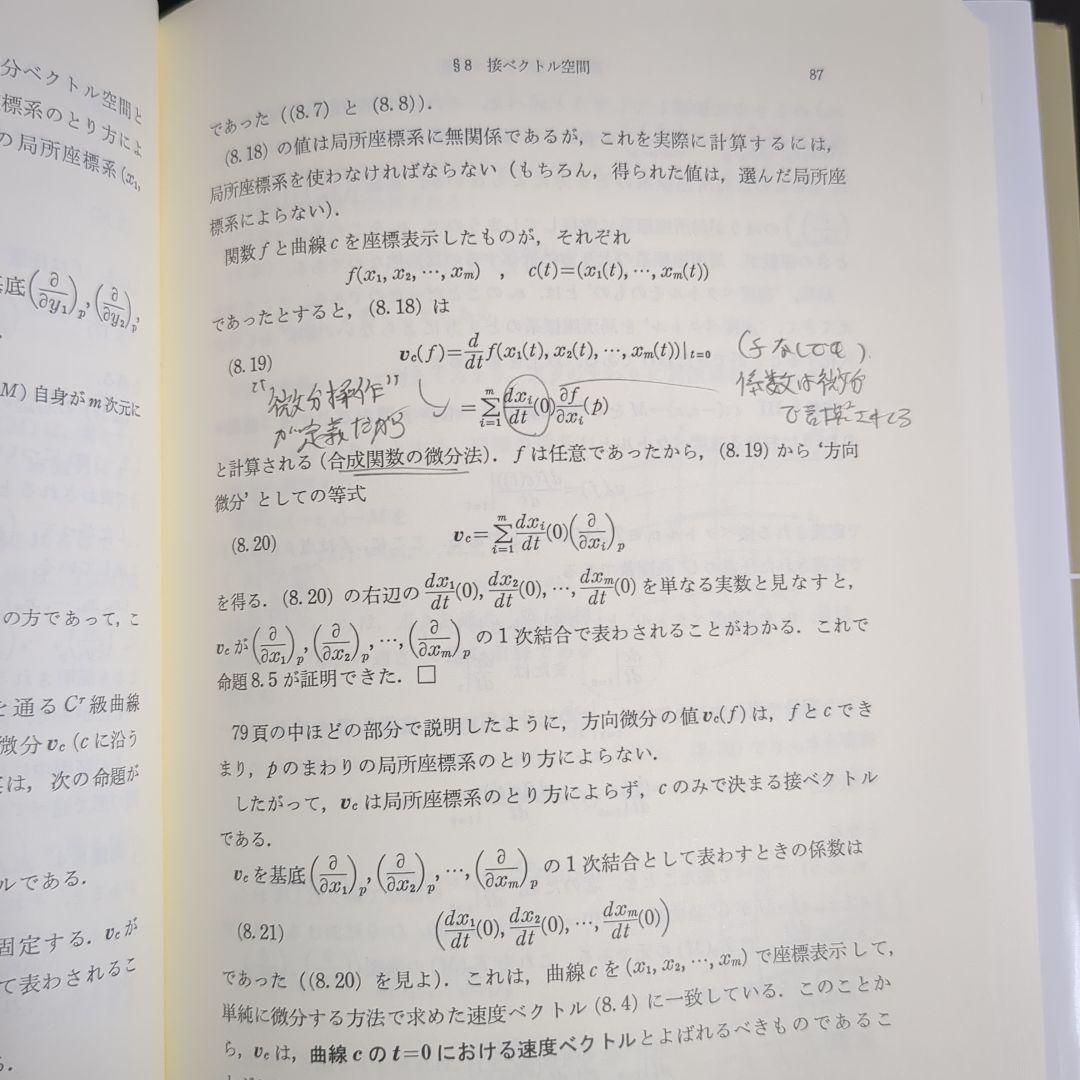 分ベクトル空間と
標系のとり方によ
の局所座標系(x₁,
基底(∂/∂y₁)ₚ, (∂/∂y₂)ₚ,
M)自身がm次元に
の方であって,こ
を通るCʳ級曲線
微分v_c(cに沿う
は,次の命題が
ルである.
固定する.v_cが
て表わされるこ
§8 接ベクトル空間
87
であった((8.7)と(8.8)).
(8.18)の値は局所座標系に無関係であるが,これを実際に計算するには,
局所座標系を使わなければならない(もちろん,得られた値は,選んだ局所座
標系によらない).
関数fと曲線cを座標表示したものが,それぞれ
f(x₁, x₂, ⋯, xₘ) , c(t)=(x₁(t), ⋯, xₘ(t))
であったとすると,(8.18)は
(8.19) v_c(f)=d/dt f(x₁(t), x₂(t), ⋯, xₘ(t))|ₜ₌₀
(fなしでも).
“微分操作”
が定義だから
=∑ᵢ₌₁ᵐ dxᵢ/dt(0) ∂f/∂xᵢ(p)
係数は微分
と計算される(合成関数の微分法).fは任意であったから,(8.19)から‘方向
微分’としての等式
(8.20) v_c=∑ᵢ₌₁ᵐ dxᵢ/dt(0)(∂/∂xᵢ)ₚ
を得る.(8.20)の右辺の dx₁/dt(0), dx₂/dt(0), ⋯, dxₘ/dt(0) を単なる実数と見なすと,
v_cが(∂/∂x₁)ₚ, (∂/∂x₂)ₚ, ⋯, (∂/∂xₘ)ₚ の1次結合で表わされることがわかる.これで
命題8.5が証明できた.□
79頁の中ほどの部分で説明したように,方向微分の値v_c(f)は,fとcでき
まり,pのまわりの局所座標系のとり方によらない.
したがって,v_cは局所座標系のとり方によらず,cのみで決まる接ベクトル
である.
v_cを基底(∂/∂x₁)ₚ, (∂/∂x₂)ₚ, ⋯, (∂/∂xₘ)ₚ の1次結合として表わすときの係数は
(8.21) (dx₁/dt(0), dx₂/dt(0), ⋯, dxₘ/dt(0))
であった((8.20)を見よ).これは,曲線cを(x₁, x₂, ⋯, xₘ)で座標表示して,
単純に微分する方法で求めた速度ベクトル(8.4)に一致している.このことか
ら,v_cは,曲線cのt=0における速度ベクトルとよばれるべきものであるこ